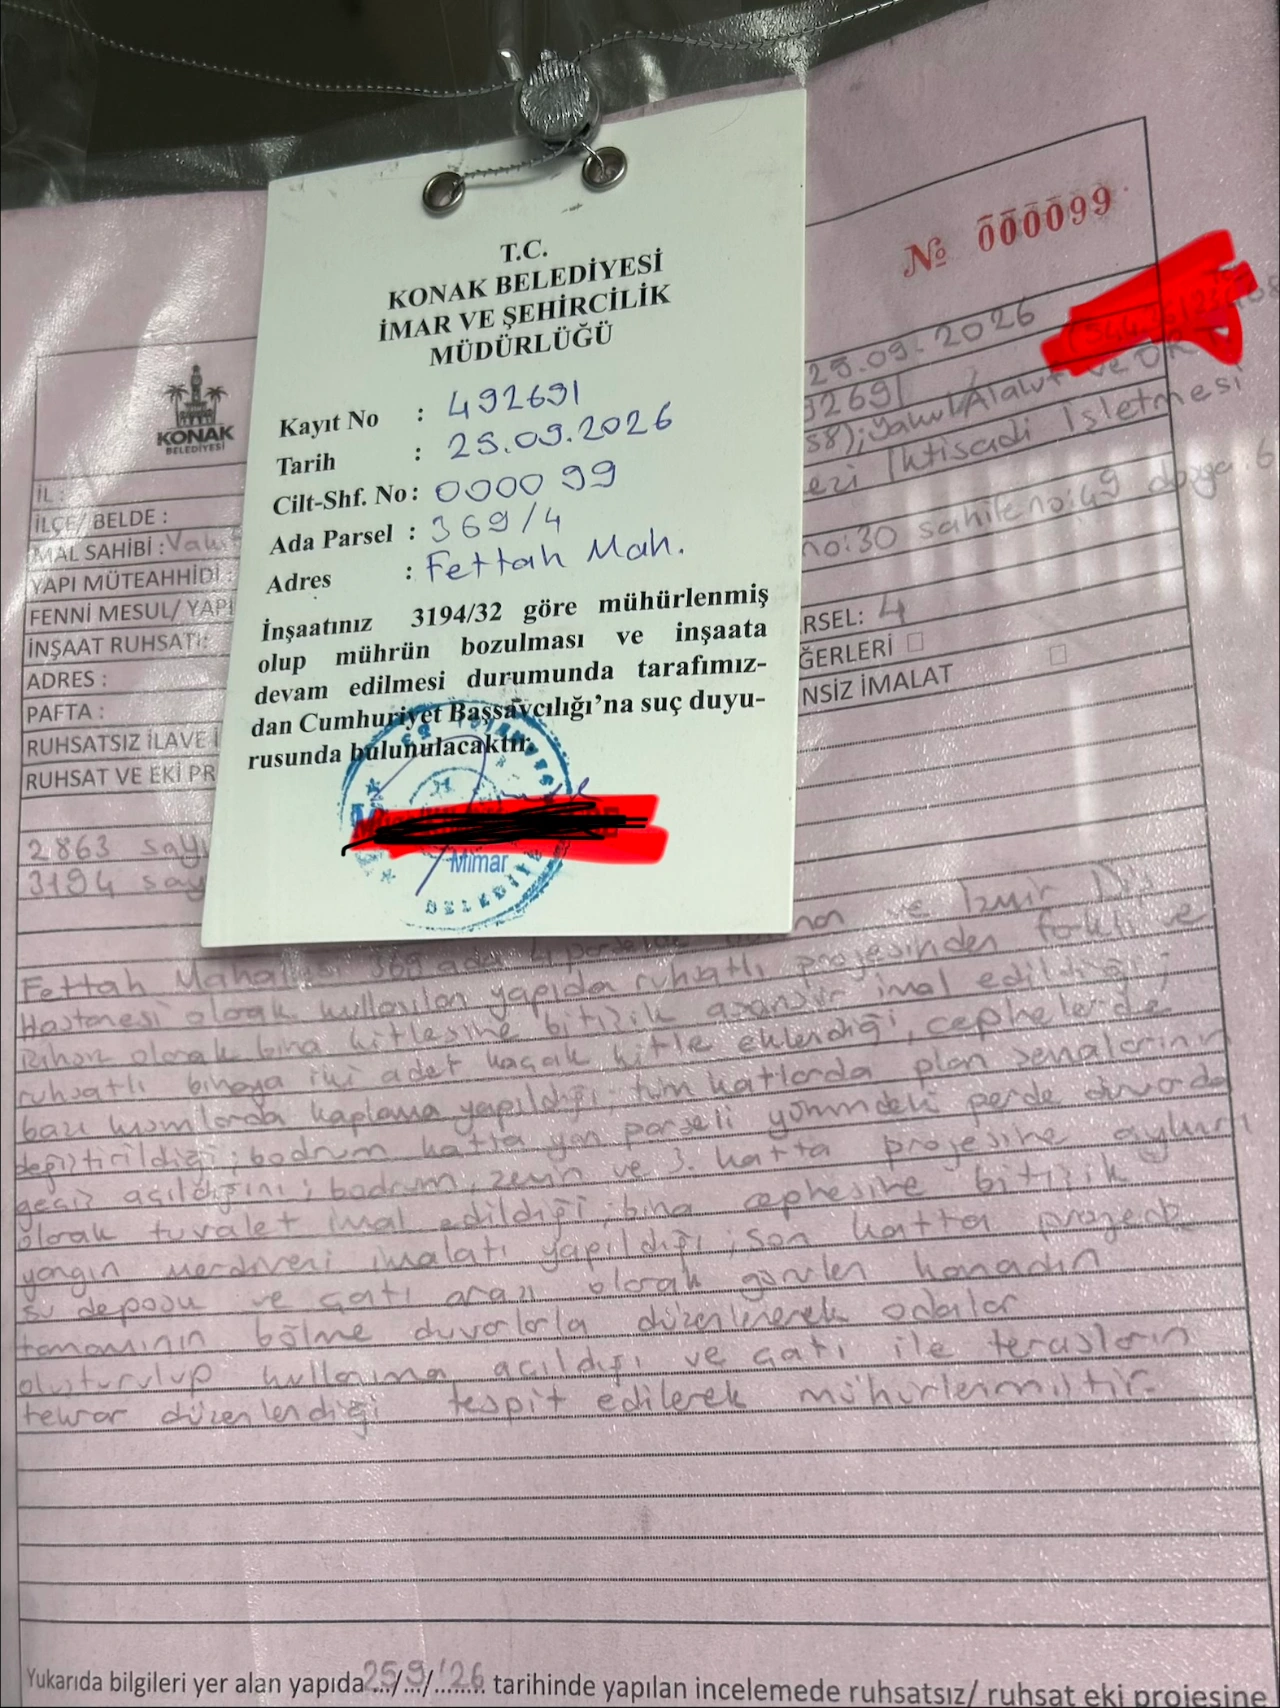 T.C.
KONAK BELEDİYESİ
İMAR VE ŞEHİRCİLİK
MÜDÜRLÜĞÜ
Kayıt No : 492691
Tarih : 25.09.2026
Cilt-Shf. No: 0000 99
Ada Parsel : 369/4
Adres : Fettah Mah.
İnşaatınız 3194/32 göre mühürlenmiş
olup mührün bozulması ve inşaata
devam edilmesi durumunda tarafımız-
dan Cumhuriyet Başsavcılığı'na suç duyu-
rusunda bulunulacaktır.
Mimar
№ 000099
KONAK
BELEDİYESİ
25.09.2026
İL :
İLÇE/ BELDE :
MAL SAHİBİ :
YAPI MÜTEAHHİDİ :
İhtisadi İşletmesi
FENNİ MESUL/ YAPI
İNŞAAT RUHSATI:
no:30 sahife no:49
ADRES :
PAFTA :
RSEL: 4
RUHSATSIZ İLAVE İ
ĞERLERİ
RUHSAT VE EKİ PR
NSİZ İMALAT
2863 sayı
3194 say
ve İzmir Diş
Fettah Mahallesi 369 ada 4 parselde
Hastanesi olarak kullanılan yapıda ruhsatlı projesinden farklı ve
olarak bina kitlesine bitişik asansör imal edildiği;
ruhsatlı binaya iki adet kaçak kitle eklendiği, cephelerde
bazı kısımlarda kaplama yapıldığı; tüm katlarda plan şemalarının
değiştirildiği; bodrum katta yan parseli yönündeki perde duvarda
geçiş açıldığını; bodrum, zemin ve 3. katta projesine aykırı
olarak tuvalet imal edildiği; bina cephesine bitişik
yangın merdiveni imalatı yapıldığı; son katta projede
su deposu ve çatı arası olarak görülen kanadın
tamamının bölme duvarlarla düzenlenerek odalar
oluşturulup kullanıma açıldığı ve çatı ile terasların
tekrar düzenlendiği tespit edilerek mühürlenmiştir.
Yukarıda bilgileri yer alan yapıda 25/9/'26 tarihinde yapılan incelemede ruhsatsız/ ruhsat eki projesine